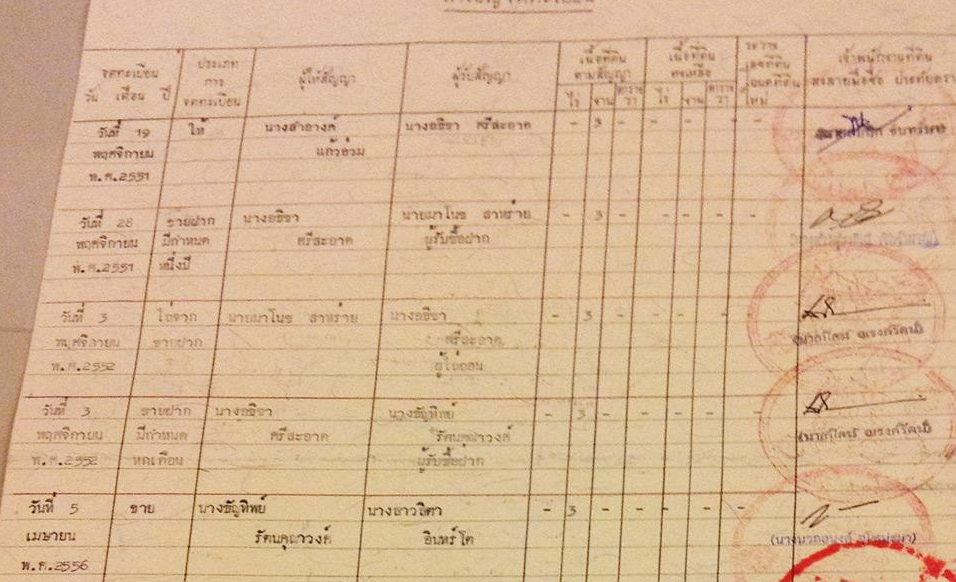 จดทะเบียน
วัน เดือน ปี
ประเภท
การ
จดทะเบียน
ผู้ให้สัญญา
ผู้รับสัญญา
เนื้อที่ดิน
ตามสัญญา
ไร่ งาน ตาราง
วา
เนื้อที่ดิน
คงเหลือ
ไร่ งาน ตาราง
วา
ระวาง
เลขที่ดิน
โฉนดที่ดิน
ใหม่
เจ้าพนักงานที่ดิน
ลงลายมือชื่อ ประทับตรา
วันที่ 19 ให้ นางสำอางค์ นางอธิชา ศรีสะอาด - 3 - - - - -
พฤศจิกายน แก้วอ่วม
พ.ศ.2551
วันที่ 28 ขายฝาก นางอธิชา นายมาโนช สาหร่าย - 3 - - - - -
พฤศจิกายน มีกำหนด ศรีสะอาด ผู้รับซื้อฝาก
พ.ศ.2551 หนึ่งปี
วันที่ 3 ไถ่จาก นายมาโนช สาหร่าย นางอธิชา - 3 - - - - -
พฤศจิกายน ขายฝาก ศรีสะอาด
พ.ศ.2552 ผู้ไถ่ถอน
วันที่ 3 ขายฝาก นางอธิชา นางธัญทิพย์ - 3 - - - - -
พฤศจิกายน มีกำหนด ศรีสะอาด รัตนคุณาวงค์
พ.ศ.2552 หกเดือน ผู้รับซื้อฝาก
วันที่ 5 ขาย นางธัญทิพย์ นางดาวิตา - 3 - - - - -
เมษายน รัตนคุณาวงค์ อินทร์โต
พ.ศ.2556